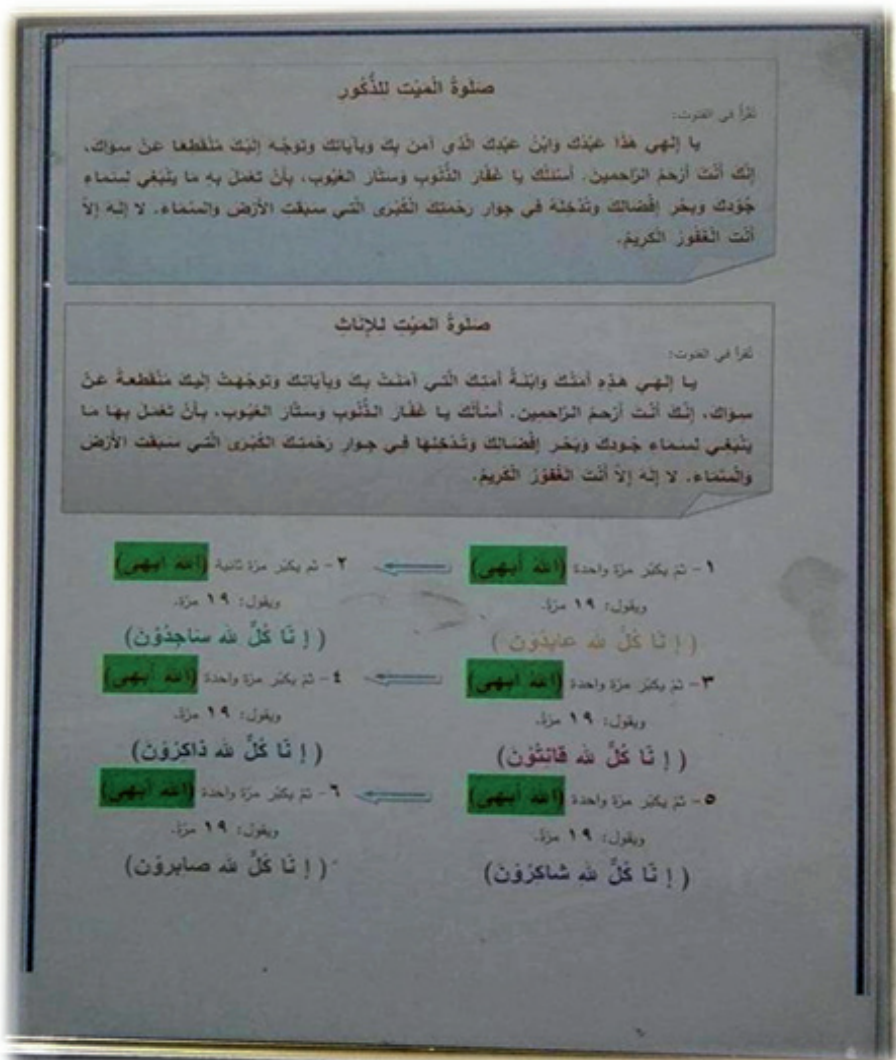 صَلٰوةُ الْمَيِّت لِلذُّكُورِ
تُقرأ في القنوت:
يا إلهي هٰذا عَبْدُكَ وَابْنُ عَبْدِكَ الَّذي آمَنَ بِكَ وَبِآيَاتِكَ وَتَوَجَّهَ إِلَيْكَ مُنْقَطِعًا عَنْ سِوَاكَ،
إِنَّكَ أَنْتَ أَرْحَمُ الرَّاحِمينَ. أَسْئَلُكَ يا غَفَّارَ الذُّنُوبِ وَسَتَّارَ الْعُيُوبِ، بِأَنْ تَعْمَلَ بِهِ ما يَنْبَغي لِسَماءِ
جُوْدِكَ وَبَحْرِ إِفْضَالِكَ وَتُدْخِلَهُ في جِوارِ رَحْمَتِكَ الْكُبْرى الَّتي سَبَقَتِ الأَرْضَ وَالسَّماءَ. لا إِلهَ إِلاَّ
أَنْتَ الْغَفُورُ الْكَرِيمُ.
صَلٰوةُ المَيِّتِ لِلإِنَاثِ
تُقرأ في القنوت:
يا إِلهي هٰذِهِ أَمَتُكَ وَابْنَةُ أَمَتِكَ الَّتي آمَنَتْ بِكَ وَبِآيَاتِكَ وَتَوَجَّهَتْ إِلَيْكَ مُنْقَطِعَةً عَنْ
سِوَاكَ، إِنَّكَ أَنْتَ أَرْحَمُ الرَّاحِمينَ. أَسْأَلُكَ يا غَفَّارَ الذُّنُوبِ وَسَتَّارَ الْعُيُوبِ، بِأَنْ تَعْمَلَ بِها ما
يَنْبَغي لِسَماءِ جُودِكَ وَبَحْرِ إِفْضَالِكَ وَتُدْخِلَها في جِوارِ رَحْمَتِكَ الكُبْرى الَّتي سَبَقَتِ الأَرْضَ
وَالسَّمَاءَ. لا إِلهَ إِلاَّ أَنْتَ الغَفُوْرُ الْكَرِيمُ.
١- ثمّ يكبّر مرّة واحدة (اللهُ أَبهى)
ويقول: ١٩ مرّة.
( إِنَّا كُلٌّ لله عابِدُوْنَ )
٢- ثم يكبّر مرّة ثانية (اللهُ ابهى)
ويقول: ١٩ مرّة.
( إِنَّا كُلٌّ لله سَاجِدُوْنَ)
٣- ثمّ يكبّر مرّة واحدة (اللهُ ابهى)
ويقول: ١٩ مرّة.
( إِنَّا كُلٌّ لله قانِتُوْنَ)
٤- ثمّ يكبّر مرّة واحدة (اللهُ أبهى)
ويقول: ١٩ مرّة.
( إِنَّا كُلٌّ لله ذاكِرُوْنَ)
٥- ثمّ يكبّر مرّة واحدة (اللهُ أبهى)
ويقول: ١٩ مرّة.
( إِنَّا كُلٌّ للهِ شاكِرُوْنَ)
٦- ثمّ يكبّر مرّة واحدة (اللهُ أبهى)
ويقول: ١٩ مرّة.
( إِنَّا كُلٌّ لله صابِروْنَ)